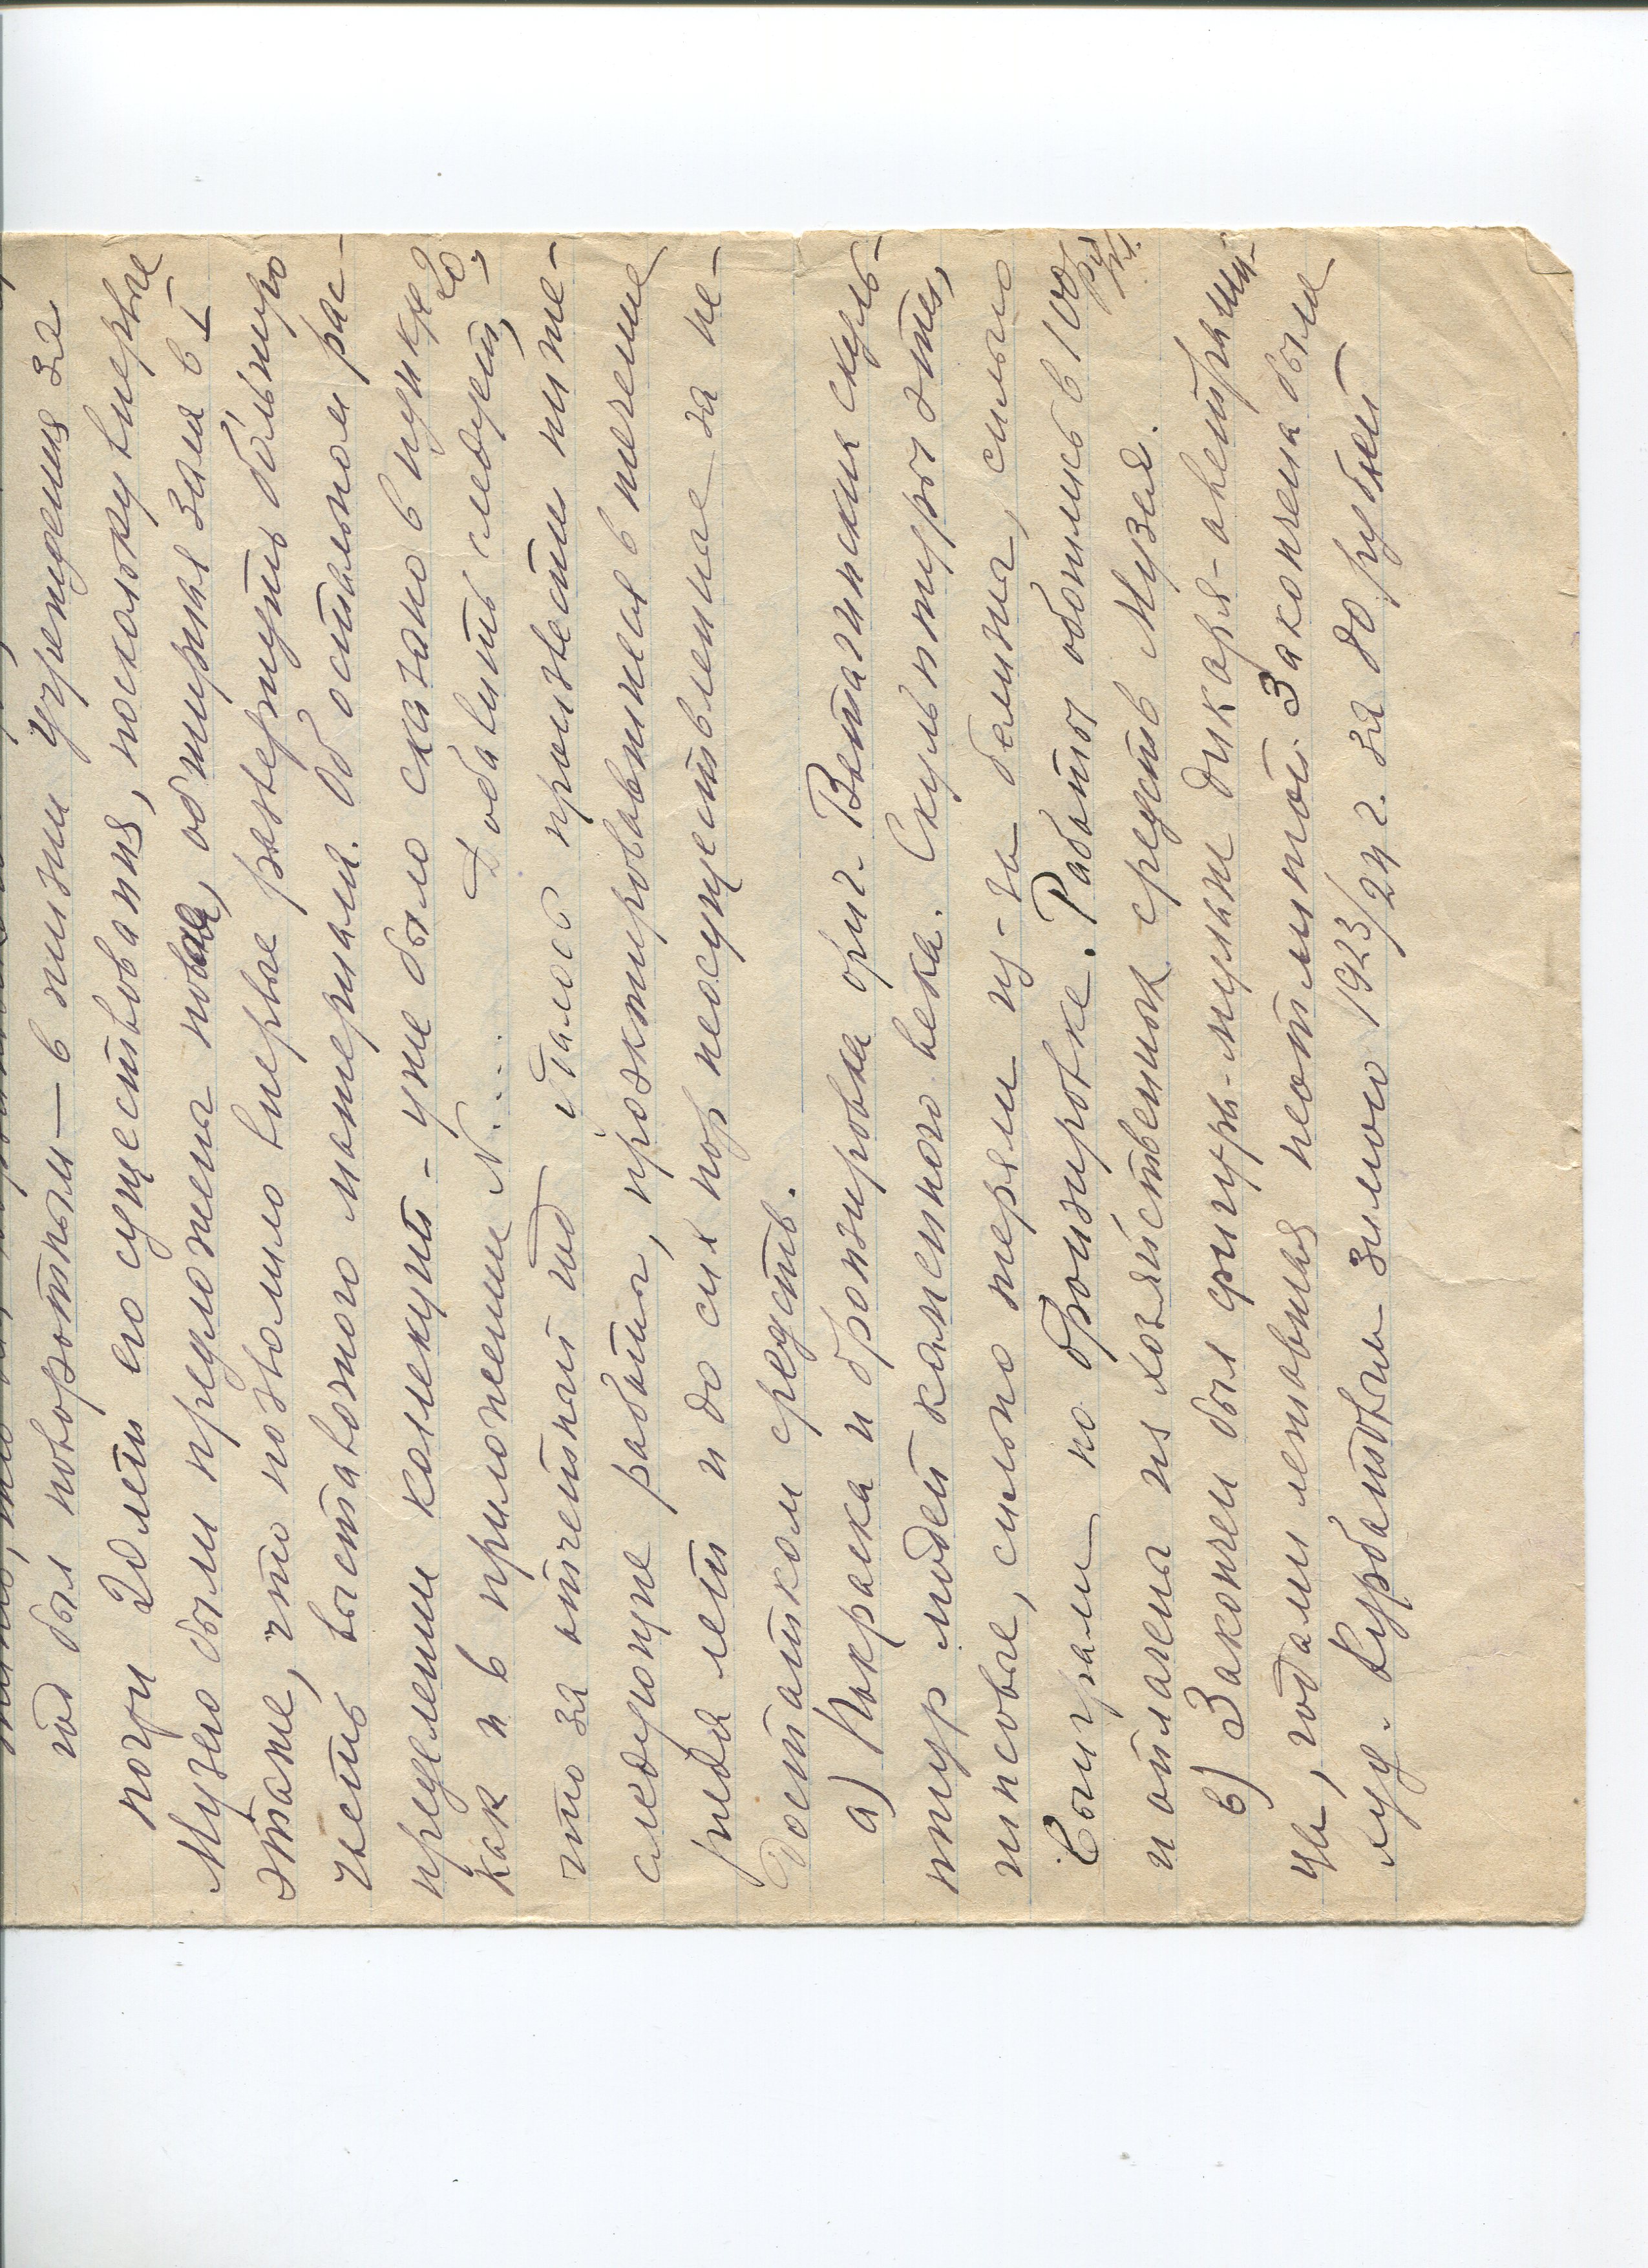 год был поворотным — в жизни учреждения за
почти 20 лет его существования, поскольку впервые
Музею были предложена новая, обширная зала в I
этаже, что позволило впервые развернуть большую
часть выставочного материала. Об остальном рас-
пределении коллекций – уже было сказано в пункте 20,
как и в приложении №... Добавить следует,
что за отчетный год удалось произвести ниже-
следующие работы, проэктировавшиеся в течение
ряда лет и до сих пор неосуществленные за не-
достатком средств.
а) Покраска и бронзировка ориг. Ватагинских скуль-
птур людей каменного века. Скульптуры эти,
гипсовые, сильно теряли из-за белизны, сильно
выиграли по бронзировке. Работы обошлись в 100 руб.
и оплачены из хозяйственных средств Музея.
в) Закончен был фигура-муляж дикаря-австралий-
ца, годами лежавшая неотлитой. Закончена была
худ. Вурбатовым зимою 1923/24 г. за 80 рублей